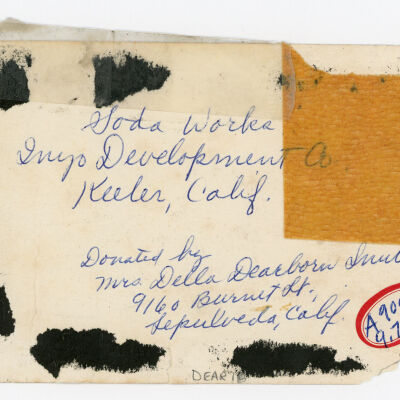 Soda Works
Inyo Development Co.
Keeler, Calif.
Donated by
Mrs. Della Dearborn
9160 Burnet St.,
Sepulveda, Calif
A900
9.7
DEAR7